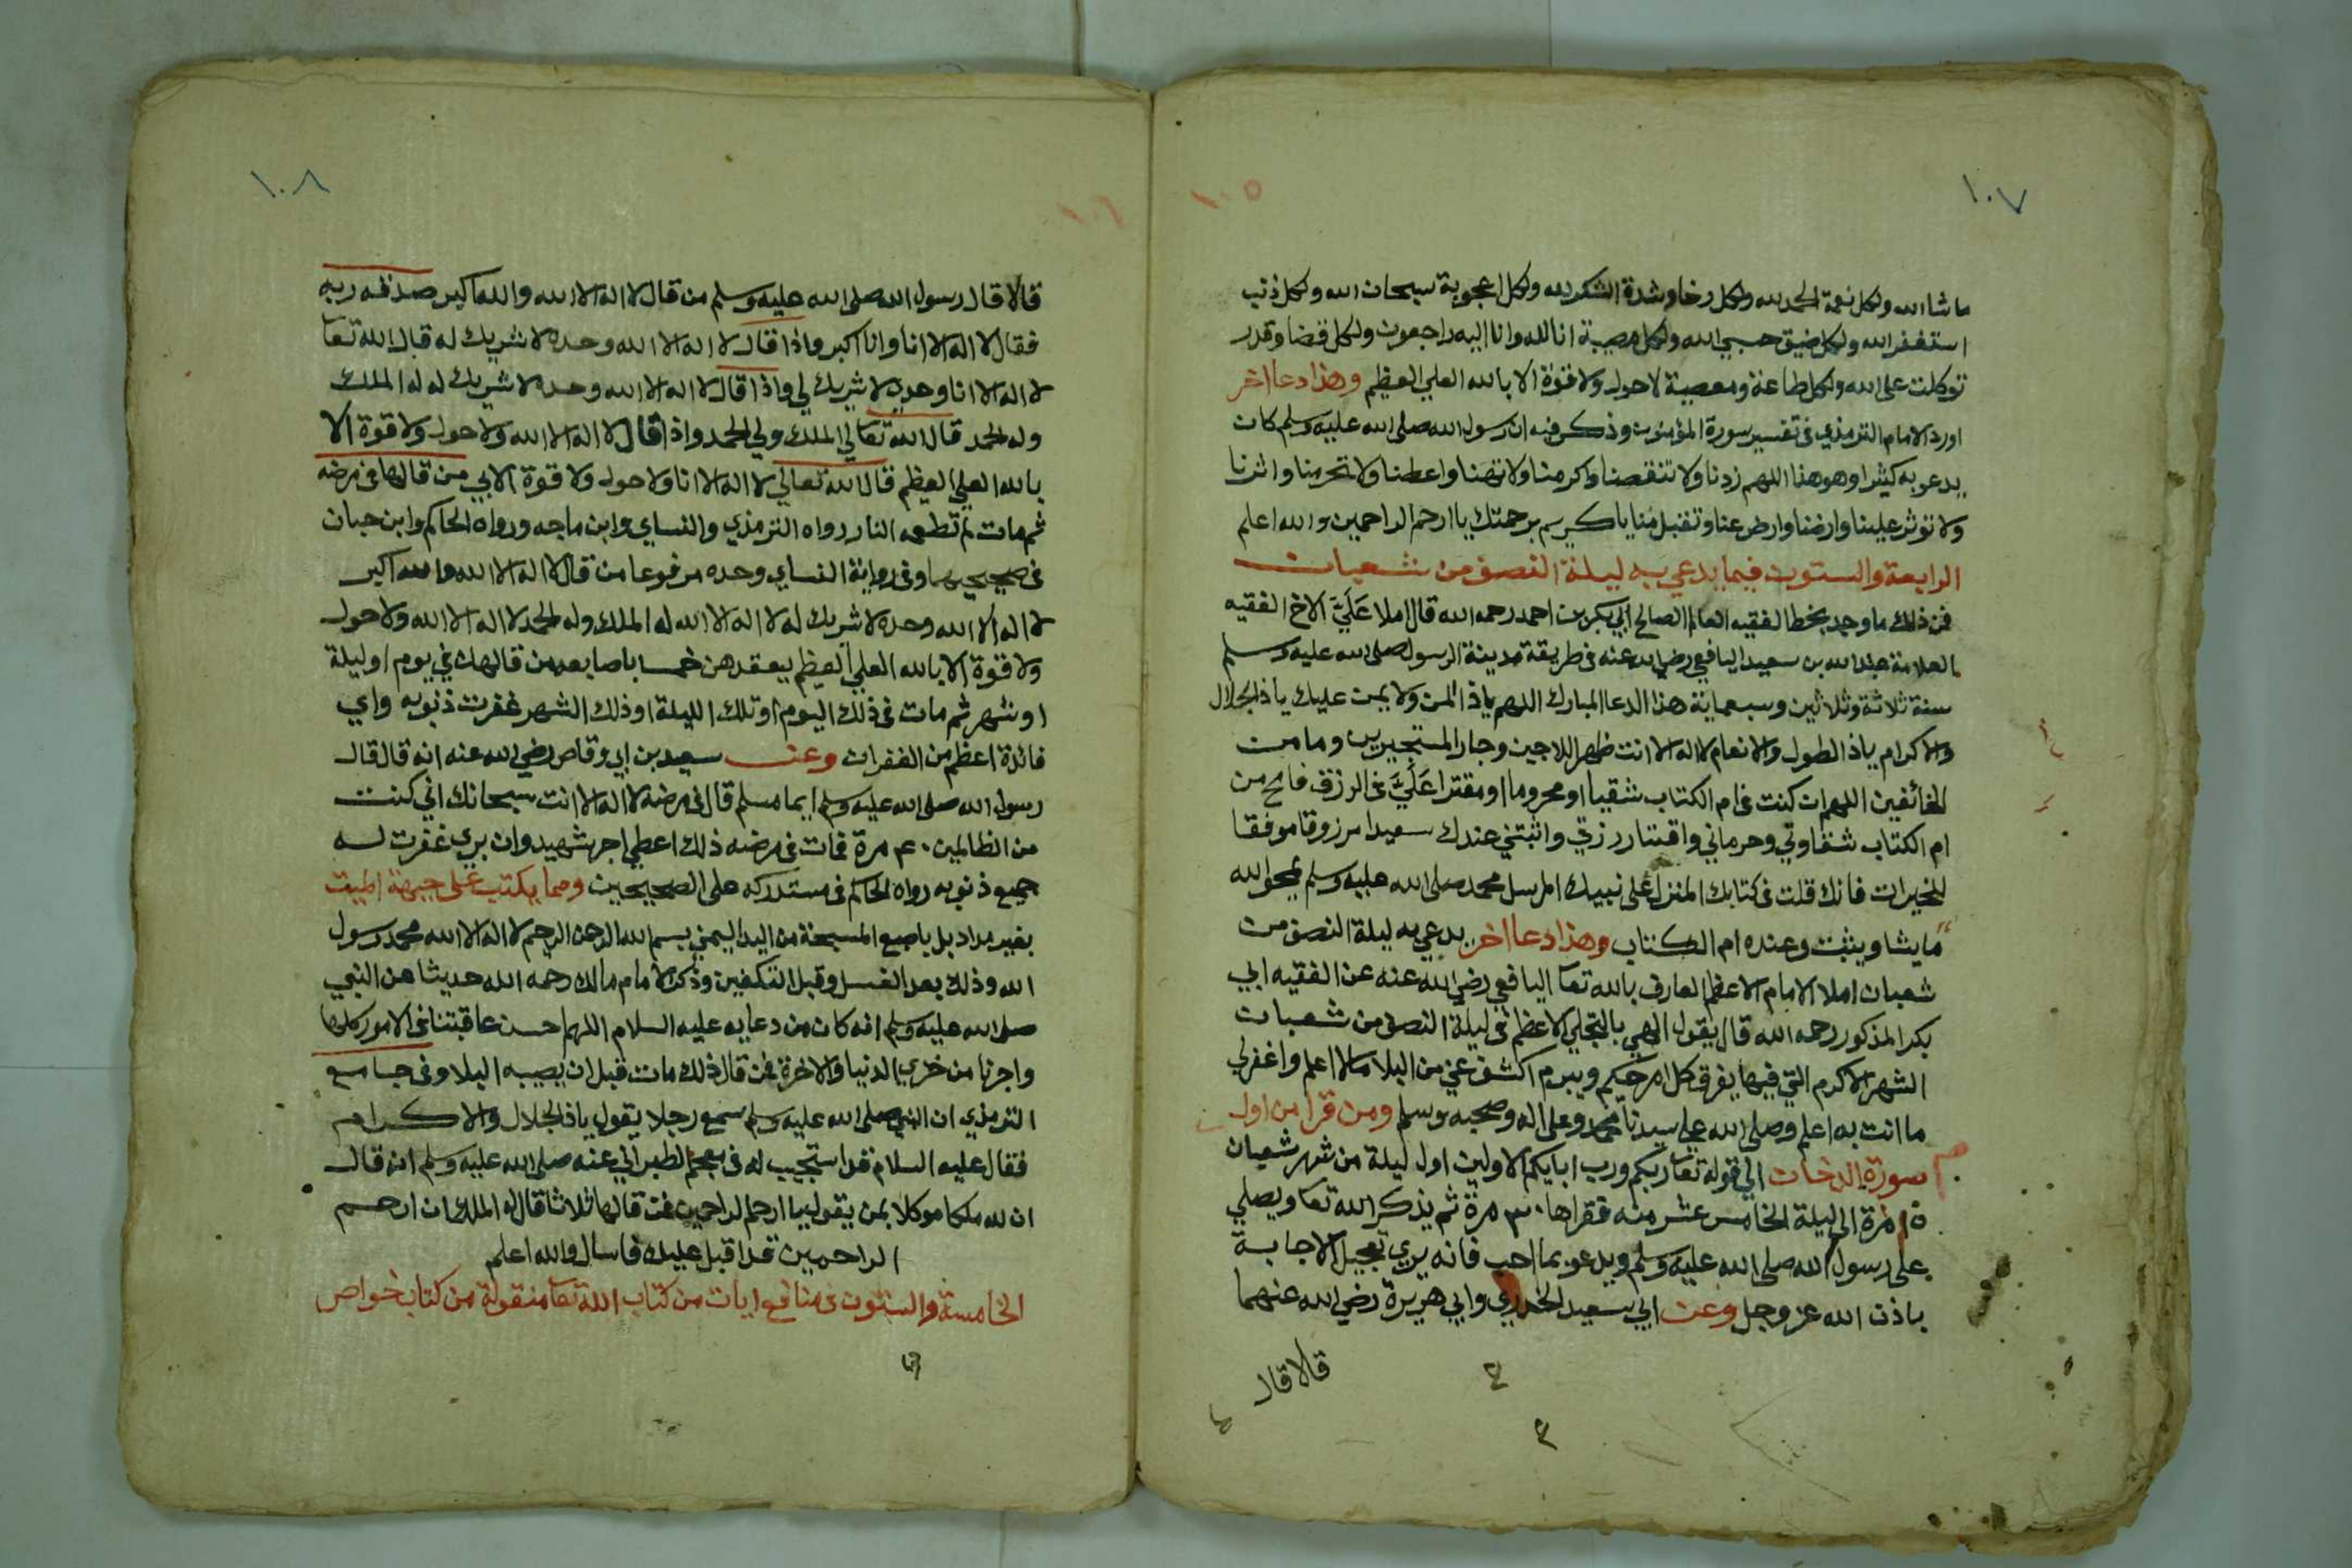 ١٠٧
١٠٥
ما شا الله ولكل نعمة الحمد لله ولكل رخا وشدة الشكر لله ولكل اعجوبة سبحان الله ولكل ذنب
استغفر الله ولكل ضيق حسبي الله ولكل مصيبة انا لله وانا اليه راجعون ولكل قضا وقدر
توكلت على الله ولكل طاعة ومعصية لا حول ولا قوة الا بالله العلي العظيم وهذا دعا اخر
اورد الامام الترمذي في تفسير سورة المؤمنون وذكر فيه ان رسول الله صلى الله عليه وسلم كان
يدعو به كثيرا وهو هذا اللهم زدنا ولا تنقصنا واكرمنا ولا تهنا واعطنا ولا تحرمنا واثرنا
ولا توثر علينا وارضنا وارض عنا وتقبل منا يا كريم برحمتك يا ارحم الراحمين والله اعلم
الرابعة والستون فيما يدعي به ليلة النصف من شعبان
فمن ذلك ما وجد بخط الفقيه العالم الصالح ابي بكر بن احمد رحمه الله قال املا عَلَيَّ الاخ الفقيه
العلامة عبد الله بن سعيد اليافعي رضي الله عنه في طريقة مدينة الرسول صلى الله عليه وسلم
سنة ثلاثة وثلاثين وسبعماية هذا الدعا المبارك اللهم ياذا المن ولا يمن عليك ياذا الجلال
والاكرام ياذا الطول والانعام لا اله الا انت ظهر اللاجين وجار المستجيرين ومامن
الخائفين اللهم ان كنت في ام الكتاب شقيا او محروما او مقترا عَلَيَّ في الرزق فامح من
ام الكتاب شقاوتي وحرماني واقتار رزقي واثبتني عندك سعيدا مرزوقا موفقا
للخيرات فانك قلت في كتابك المنزل على نبيك المرسل محمد صلى الله عليه وسلم يمحو الله
ما يشا ويثبت وعنده ام الكتاب وهذا دعا اخر يدعي به ليلة النصف من
شعبان املا الامام الاعظم العارف بالله تعا اليافعي رضي الله عنه عن الفقيه ابي
بكر المذكور رحمه الله قال يقول الهي بالتجلي الاعظم في ليلة النصف من شعبان
الشهر الاكرم التي فيها يفرق كل امر حكيم ويبرم اكشف عني من البلا مالا اعلم واغفر لي
ما انت به اعلم وصلى الله على سيدنا محمد وعلى اله وصحبه وسلم ومن قرا من اول
سورة الدخان الى قوله تعا ربكم ورب ابايكم الاولين اول ليلة من شهر شعبان
١٥ مرة الى ليلة الخامس عشر منه فقراها ٣٠ مرة ثم يذكر الله تعا ويصلي
على رسول الله صلى الله عليه وسلم ويدعو بما احب فانه يري تعجيل الاجابة
باذن الله عز وجل وعن ابي سعيد الخدري وابي هريرة رضي الله عنهما
قالا قال
١٠٨
١٠٦
قالا قال رسول الله صلى الله عليه وسلم من قال لا اله الا الله والله اكبر صدقه ربه
فقال لا اله الا انا وانا اكبر واذا قال لا اله الا الله وحده لا شريك له قال الله تعا
لا اله الا انا وحدي لا شريك لي واذا قال لا اله الا الله وحده لا شريك له له الملك
وله الحمد قال الله تعا لي الملك ولي الحمد واذا قال لا اله الا الله ولا حول ولا قوة الا
بالله العلي العظيم قال الله تعالي لا اله الا انا ولا حول ولا قوة الا بي من قالها في مرضه
ثم مات لم تطعمه النار رواه الترمذي والنساي وابن ماجه ورواه الحاكم وابن حبان
في صحيحيهما وفي رواية النساي وحده مرفوعا من قال لا اله الا الله والله اكبر
لا اله الا الله وحده لا شريك له لا اله الا الله له الملك وله الحمد لا اله الا الله ولا حول
ولا قوة الا بالله العلي العظيم يعقدهن خمسا باصابعه من قالهن في يوم او ليلة
او شهر ثم مات في ذلك اليوم او تلك الليلة او ذلك الشهر غفرت ذنوبه واي
فائدة اعظم من الغفران وعن سعيد بن ابي وقاص رضي الله عنه انه قال قال
رسول الله صلى الله عليه وسلم ايما مسلم قال في مرضه لا اله الا انت سبحانك اني كنت
من الظالمين ٤٠ مرة فمات في مرضه ذلك اعطي اجر شهيد وان بري غفرت له
جميع ذنوبه رواه الحاكم في مستدركه على الصحيحين ومما يكتب على جبهة الميت
بغير مداد بل باصبع المسبحة من اليد اليمني بسم الله الرحمن الرحيم لا اله الا الله محمد رسول
الله وذلك بعد الغسل وقبل التكفين وذكر الامام مالك رحمه الله حديثا عن النبي
صلى الله عليه وسلم انه كان من دعايه عليه السلام اللهم احسن عاقبتنا في الامور كلها
واجرنا من خزي الدنيا والاخرة فمن قال ذلك مات قبل ان يصيبه البلا وفي جامع
الترمذي ان النبي صلى الله عليه وسلم سمع رجلا يقول ياذا الجلال والاكرام
فقال عليه السلام قد استجيب له في معجم الطبراني عنه صلى الله عليه وسلم انه قال
ان لله ملكا موكلا بمن يقول يا ارحم الراحمين فمن قالها ثلاثا قال له الملك ان ارحم
الراحمين قد اقبل عليك فاسال والله اعلم
الخامسة والستون في منافع ايات من كتاب الله تعا منقولة من كتاب خواص